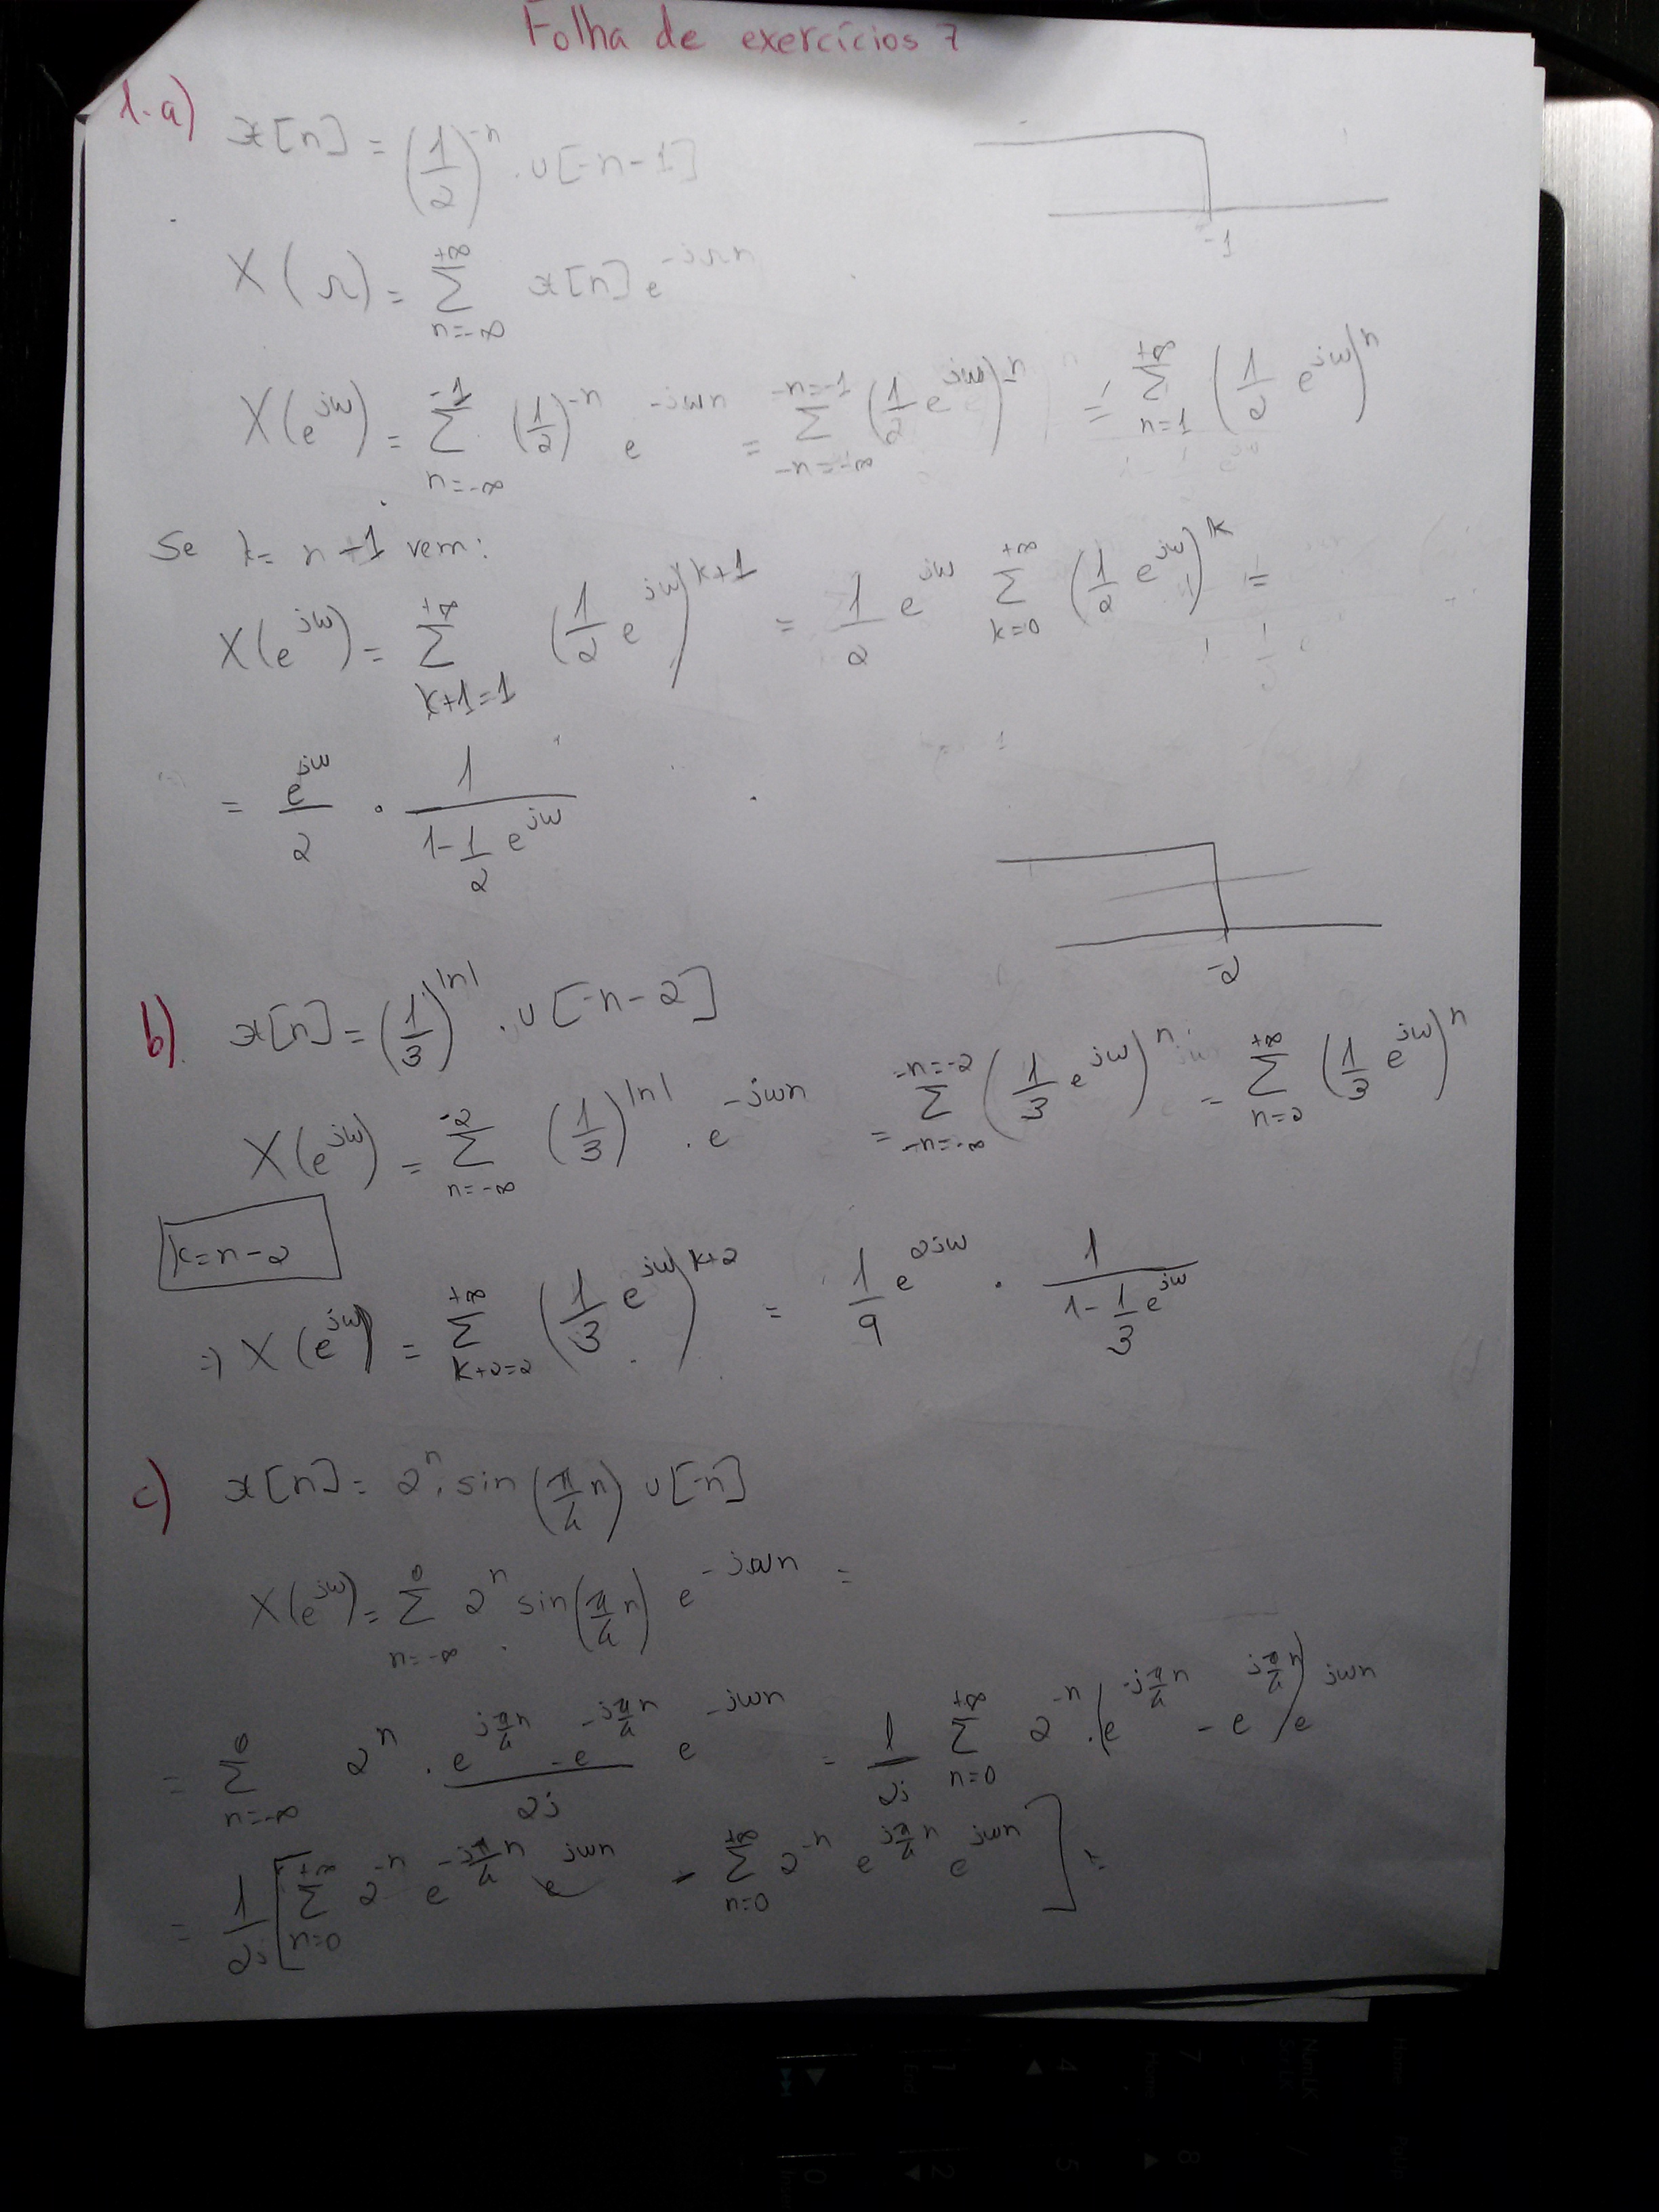 Folha de exercícios 7
1-a) x[n] = (1/2)^-n . u[-n-1]
-1
X(Ω) = Σ_{n=-∞}^{+∞} x[n] e^-jΩn
X(e^jω) = Σ_{n=-∞}^{-1} (1/2)^-n e^-jωn = Σ_{-n=-∞}^{-n=-1} (1/2 e^jω)^-n = Σ_{n=1}^{+∞} (1/2 e^jω)^n
Se k= n-1 vem:
X(e^jω) = Σ_{k+1=1}^{+∞} (1/2 e^jω)^k+1 = 1/2 e^jω Σ_{k=0}^{+∞} (1/2 e^jω)^k =
= e^jω/2 . 1/(1-1/2 e^jω)
-2
b) x[n] = (1/3)^|n| . u[-n-2]
X(e^jω) = Σ_{n=-∞}^{-2} (1/3)^|n| . e^-jωn = Σ_{-n=-∞}^{-n=-2} (1/3 e^jω)^n = Σ_{n=2}^{+∞} (1/3 e^jω)^n
k=n-2
=> X(e^jω) = Σ_{k+2=2}^{+∞} (1/3 e^jω)^k+2 = 1/9 e^2jω . 1/(1-1/3 e^jω)
c) x[n] = 2^n . sin(π/4 n) u[-n]
X(e^jω) = Σ_{n=-∞}^{0} 2^n sin(π/4 n) e^-jωn =
= Σ_{n=-∞}^{0} 2^n . (e^{jπ/4 n} - e^{-jπ/4 n})/2j e^-jωn = 1/2j Σ_{n=0}^{+∞} 2^-n . (e^{-jπ/4 n} - e^{jπ/4 n}) e^jωn
= 1/2j [Σ_{n=0}^{+∞} 2^-n e^{-jπ/4 n} e^jωn - Σ_{n=0}^{+∞} 2^-n e^{jπ/4 n} e^jωn] =